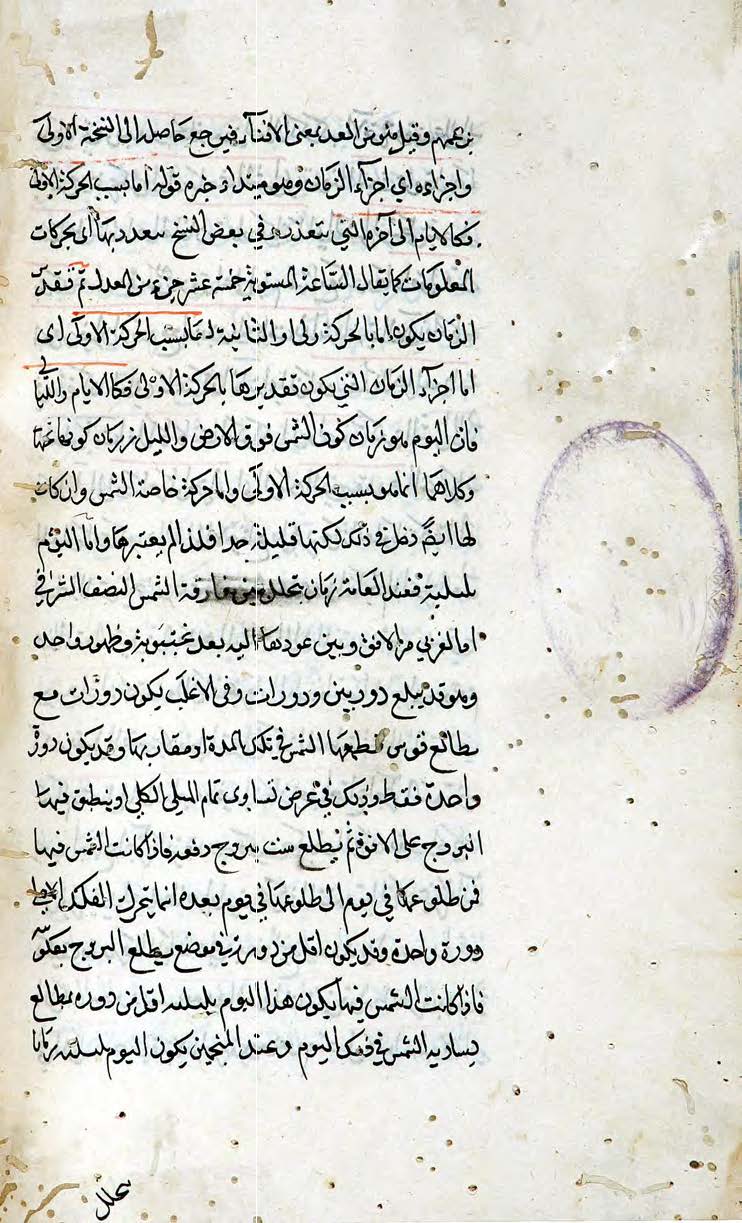 بزعمهم وقيل هو من العد بمعنى الافناء فيرجع حاصله الى النسخة الاولى
واجزاءه اى اجزاء الزمان وهو مبتداء خبره قوله اما بسبب الحركة الاولى
فكالايام الى آخره التى يتعذر وفي بعض النسخ يتعدد بها اى بحركات
المعلومات كما يقال الساعة المستوية خمسة عشر جزء من المعدل ثم فقدر
الزمان يكون اما بالحركة ولى او الثانية اما بسبب الحركة الاولى اى
اما اجزاء الزمان التى يكون تقديرها بالحركة الاولى فكالايام والليالى
فان اليوم هو زمان كون الشمس فوق الارض والليل زمان كونها تحتها
وكلاهما انما هو بسبب الحركة الاولى واما حركة خاصة الشمس وان كان
لها ايضا دخل في ذلك لكنها قليلة جدا فلذا لم يعتبرها واما اليوم
بليلته فعند العامة زمان يتخلل بين مفارقة الشمس النصف الشرقى
او الغربي من الافق وبين عودها اليه بعد غيبوبة وظهور واحد
وهو قد يبلغ دورتين ودورات وفى الاغلب يكون دورات مع
مطالع قوس تقطعها الشمس في تلك المدة او مقاربها وقد يكون دورة
واحدة فقط وذلك في عرض تساوى تمام الميل الكلى او ينطبق فيها
البروج على الافق ثم يطلع ست بروج دفعة فاذا كانت الشمس فيها
فمن طلوعها في يوم الى طلوعها في يوم بعده انما يتحرك الفلك الاعظم
دورة واحدة وقد يكون اقل من دورة في موضع يطلع البروج معكوسة
فاذا كانت الشمس فيها يكون هذا اليوم بليلته اقل من دورة بمطالع
يساويه الشمس في ذلك اليوم وعند المنجمين يكون اليوم بليلته زمانا
يتخلل